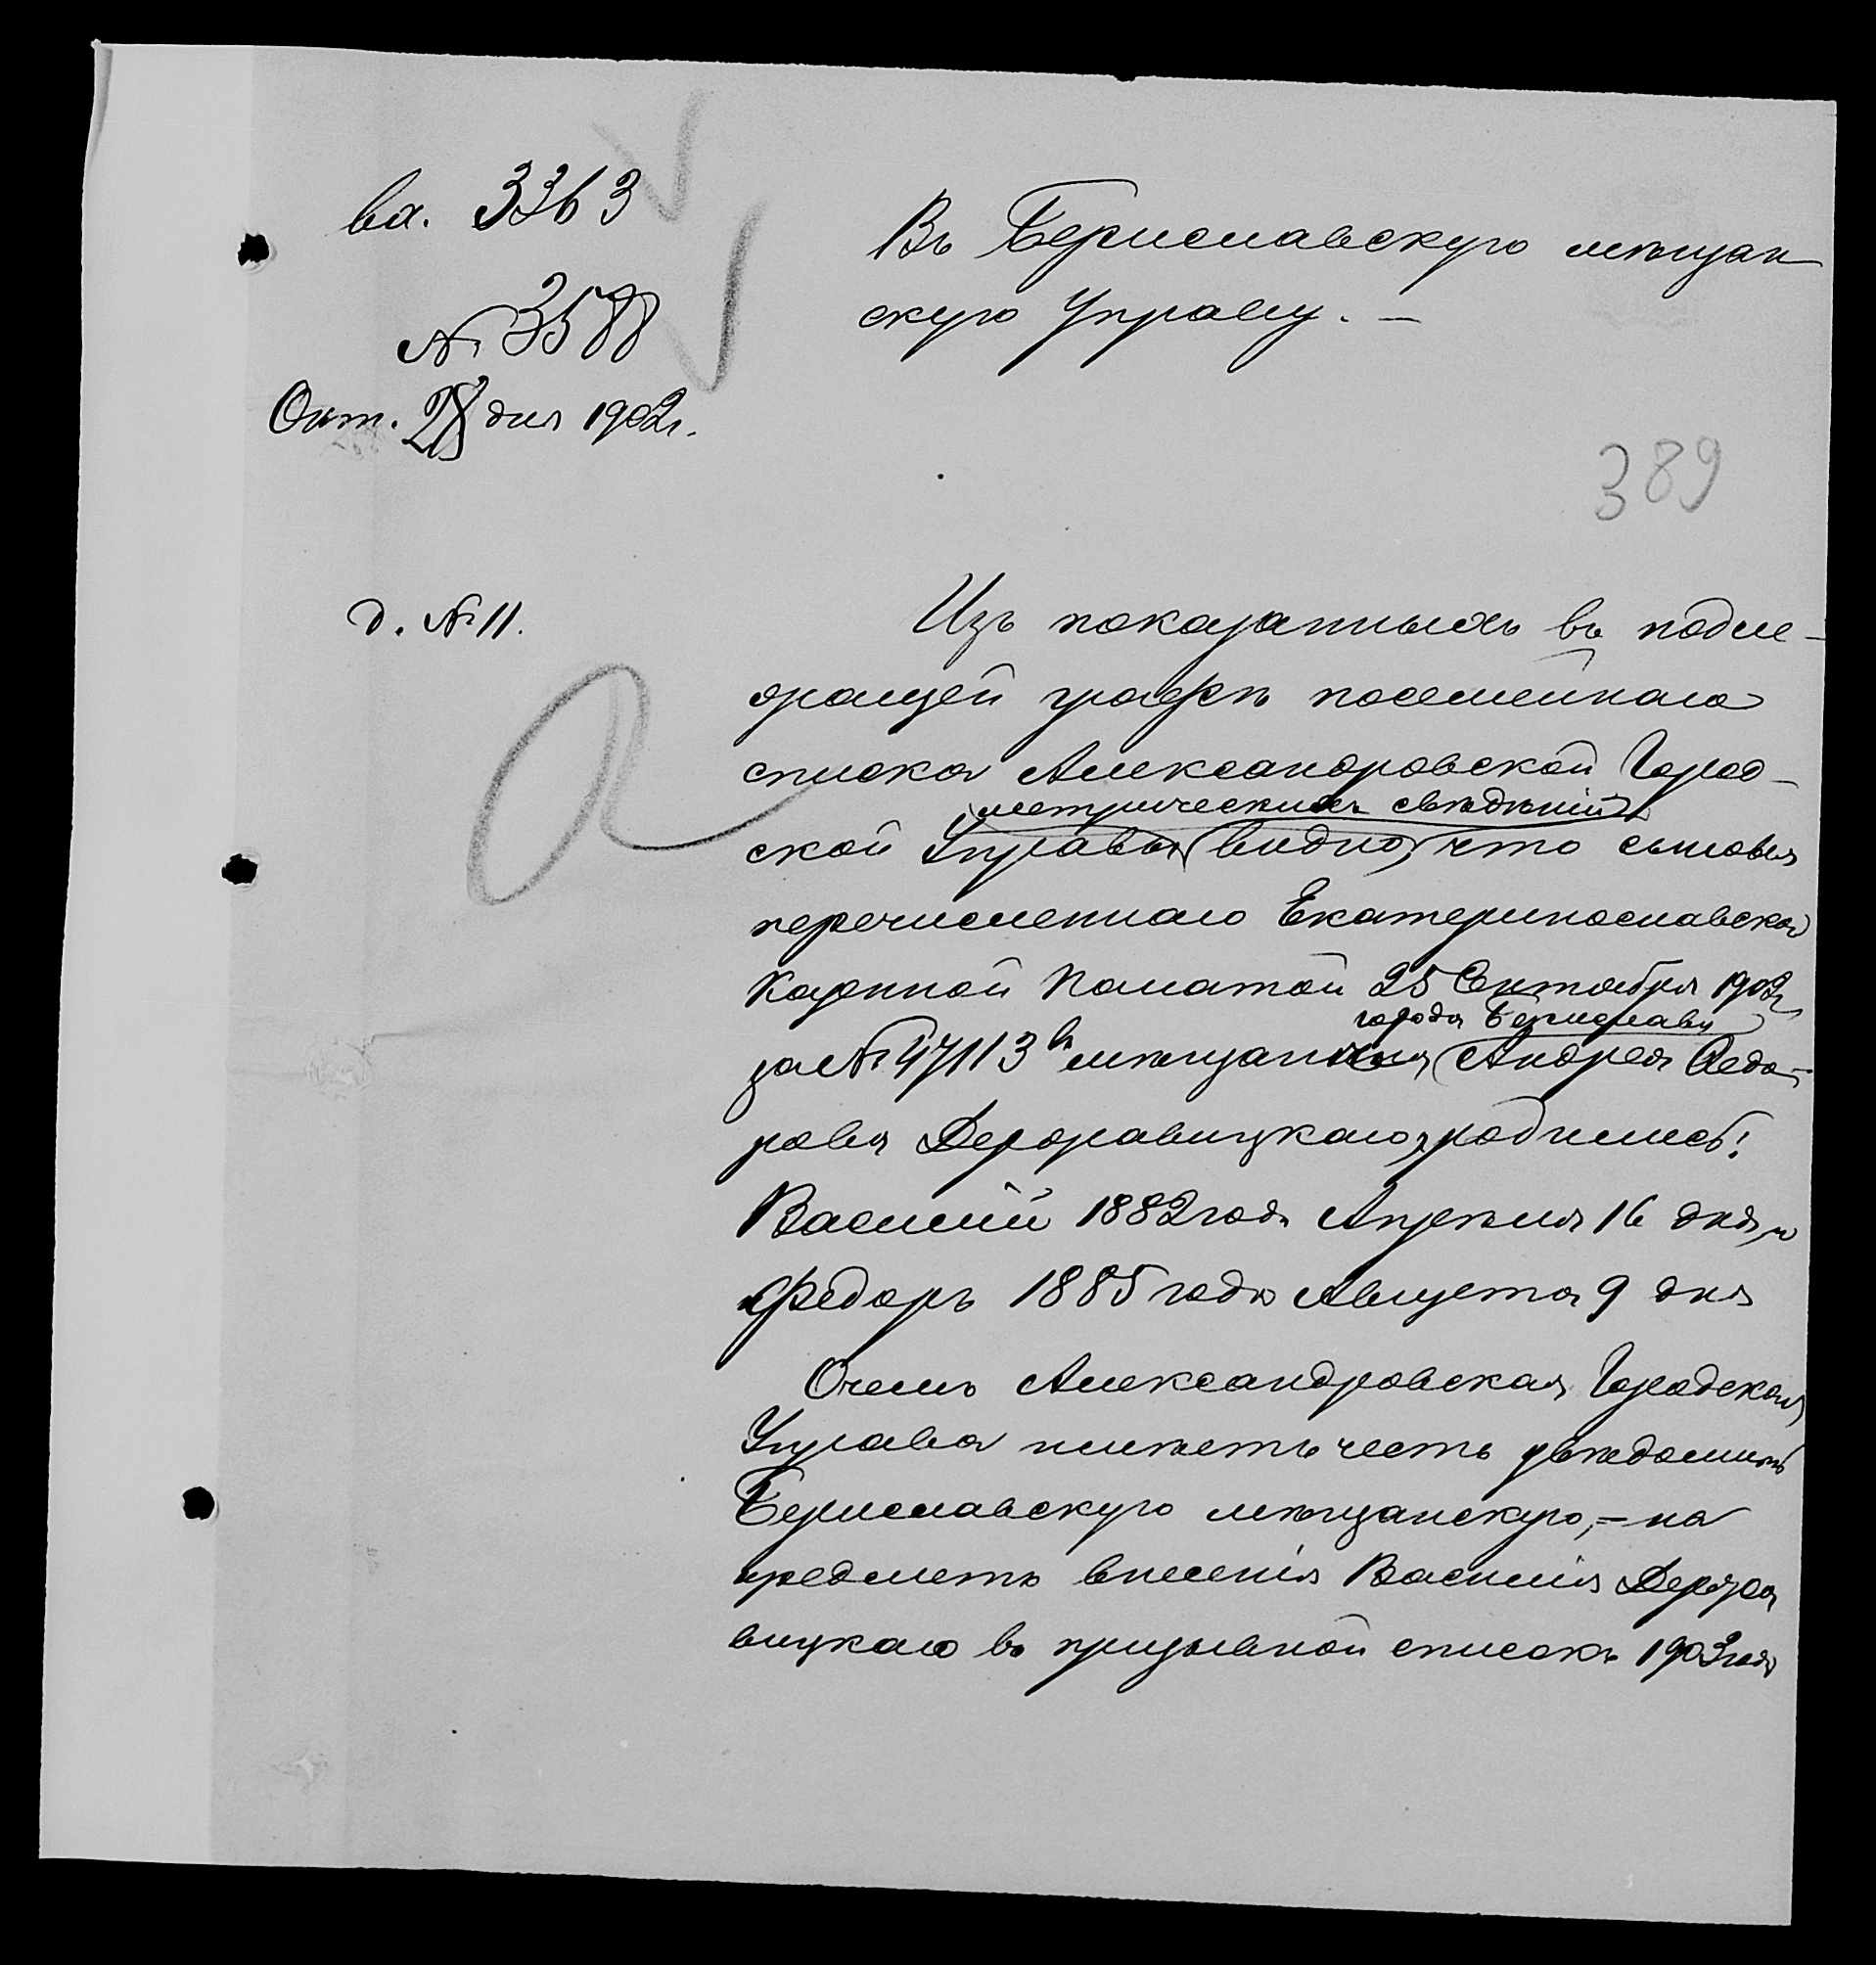 вх. 3363
№ 3588
Окт. 28 дня 1902 г.
Въ Бериславскую мѣщан
скую Управу. —
389
д. № 11.
Изъ показанныхъ въ подле-
жащей графѣ посемейнаго
списка Александровской Город-
метрическихъ свѣдѣній
ской Управы видно, что сыновья
перечисленнаго Екатеринославской
Казенной Палатой 25 Сентября 1902 г.
города Берислава
за № 47113 въ мѣщане Андрея Ѳедо-
рова родились:
Василій 1882 года Апрѣля 16 дня, и
Федоръ 1885 года Августа 9 дня
О чемъ Александровская Городская
Управа имѣетъ честь увѣдомить
Бериславскую мѣщанскую, — на
предметъ внесенія Василія
вицкаго въ призывной списокъ 1903 года